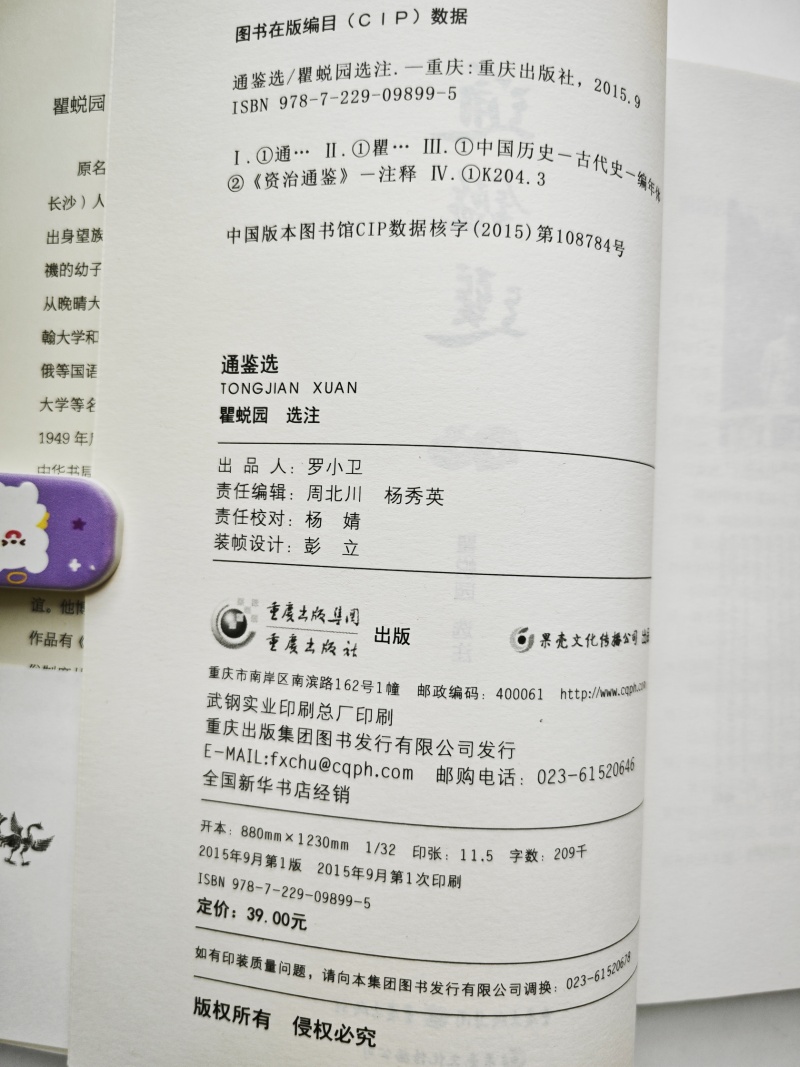 图书在版编目（CIP）数据
通鉴选/瞿蜕园选注.—重庆：重庆出版社，2015.9
ISBN 978-7-229-09899-5
Ⅰ.①通… Ⅱ.①瞿… Ⅲ.①中国历史－古代史－编年体
②《资治通鉴》－注释 Ⅳ.①K204.3
中国版本图书馆CIP数据核字(2015)第108784号
通鉴选
TONGJIAN XUAN
瞿蜕园 选注
出 品 人：罗小卫
责任编辑：周北川 杨秀英
责任校对：杨 婧
装帧设计：彭 立
重庆出版集团
重庆出版社 出版
果壳文化传播公司 出品
重庆市南岸区南滨路162号1幢 邮政编码：400061 http://www.cqph.com
武钢实业印刷总厂印刷
重庆出版集团图书发行有限公司发行
E-MAIL:fxchu@cqph.com 邮购电话：023-61520646
全国新华书店经销
开本：880mm×1230mm 1/32 印张：11.5 字数：209千
2015年9月第1版 2015年9月第1次印刷
ISBN 978-7-229-09899-5
定价：39.00元
如有印装质量问题，请向本集团图书发行有限公司调换：023-61520678
版权所有 侵权必究
瞿蜕园
原名
长沙）人
出身望族
禨的幼子
从晚晴大
翰大学和
俄等国语
大学等名
1949年
中华书局
谊。他博
作品有《